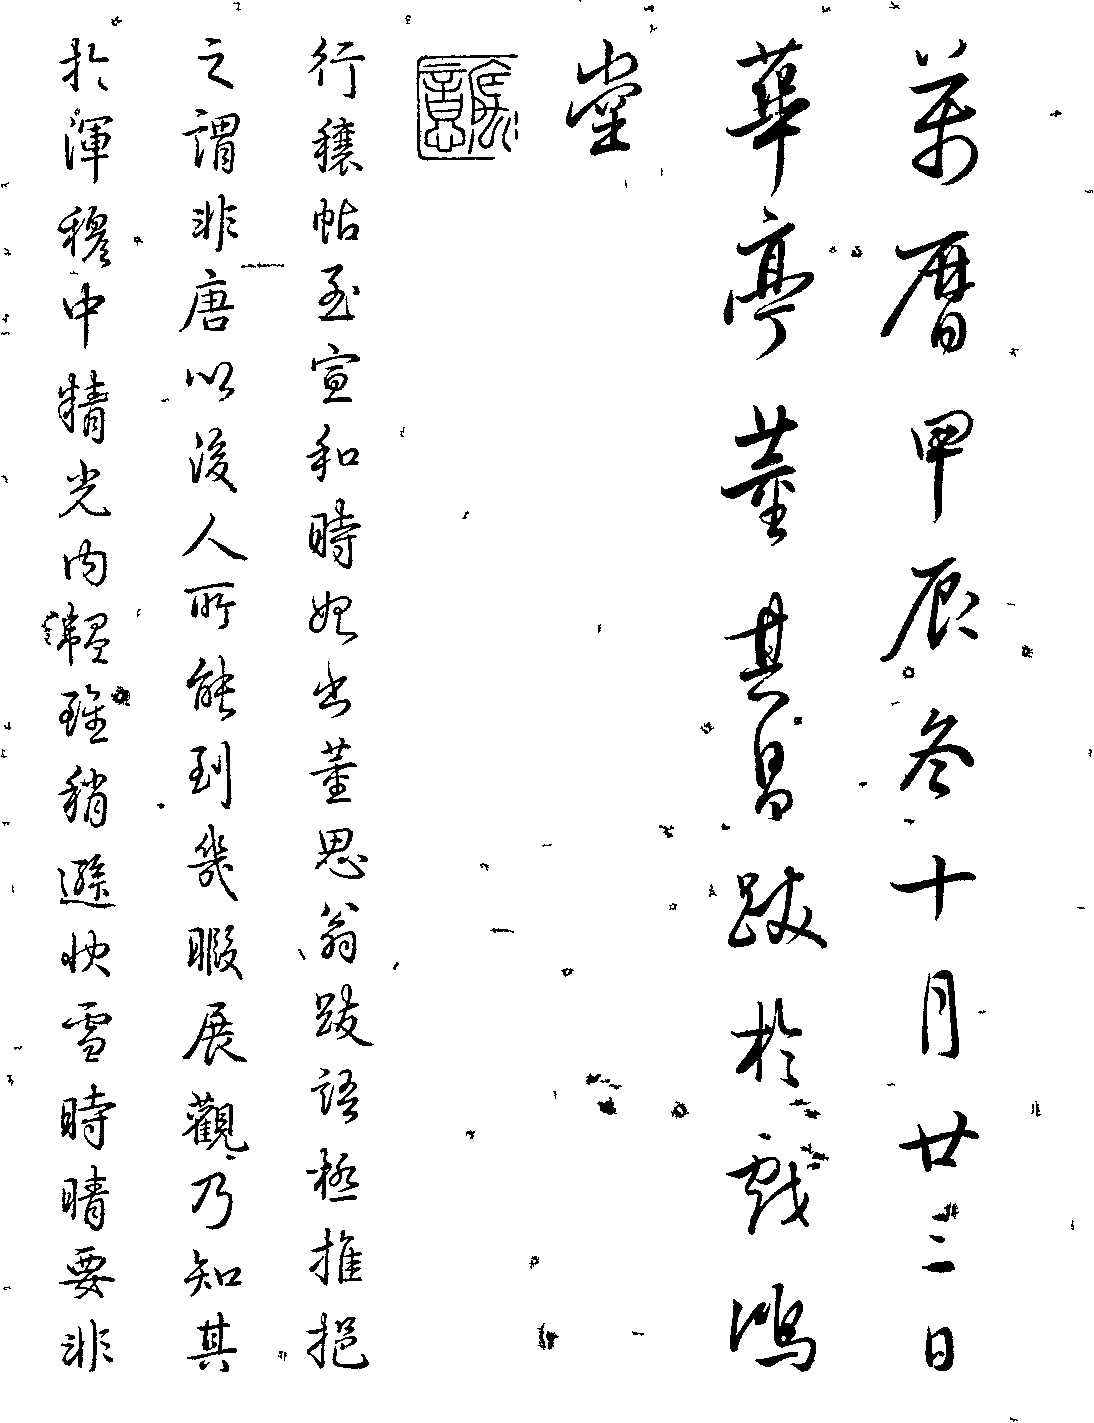 萬曆甲辰冬十月廿三日
華亭董其昌跋於戲鴻
堂
行穰帖至宣和時始出董思翁跋語極推挹
之謂非唐以後人所能到幾暇展觀乃知其
於渾穆中精光內韞雖稍遜快雪時晴要非